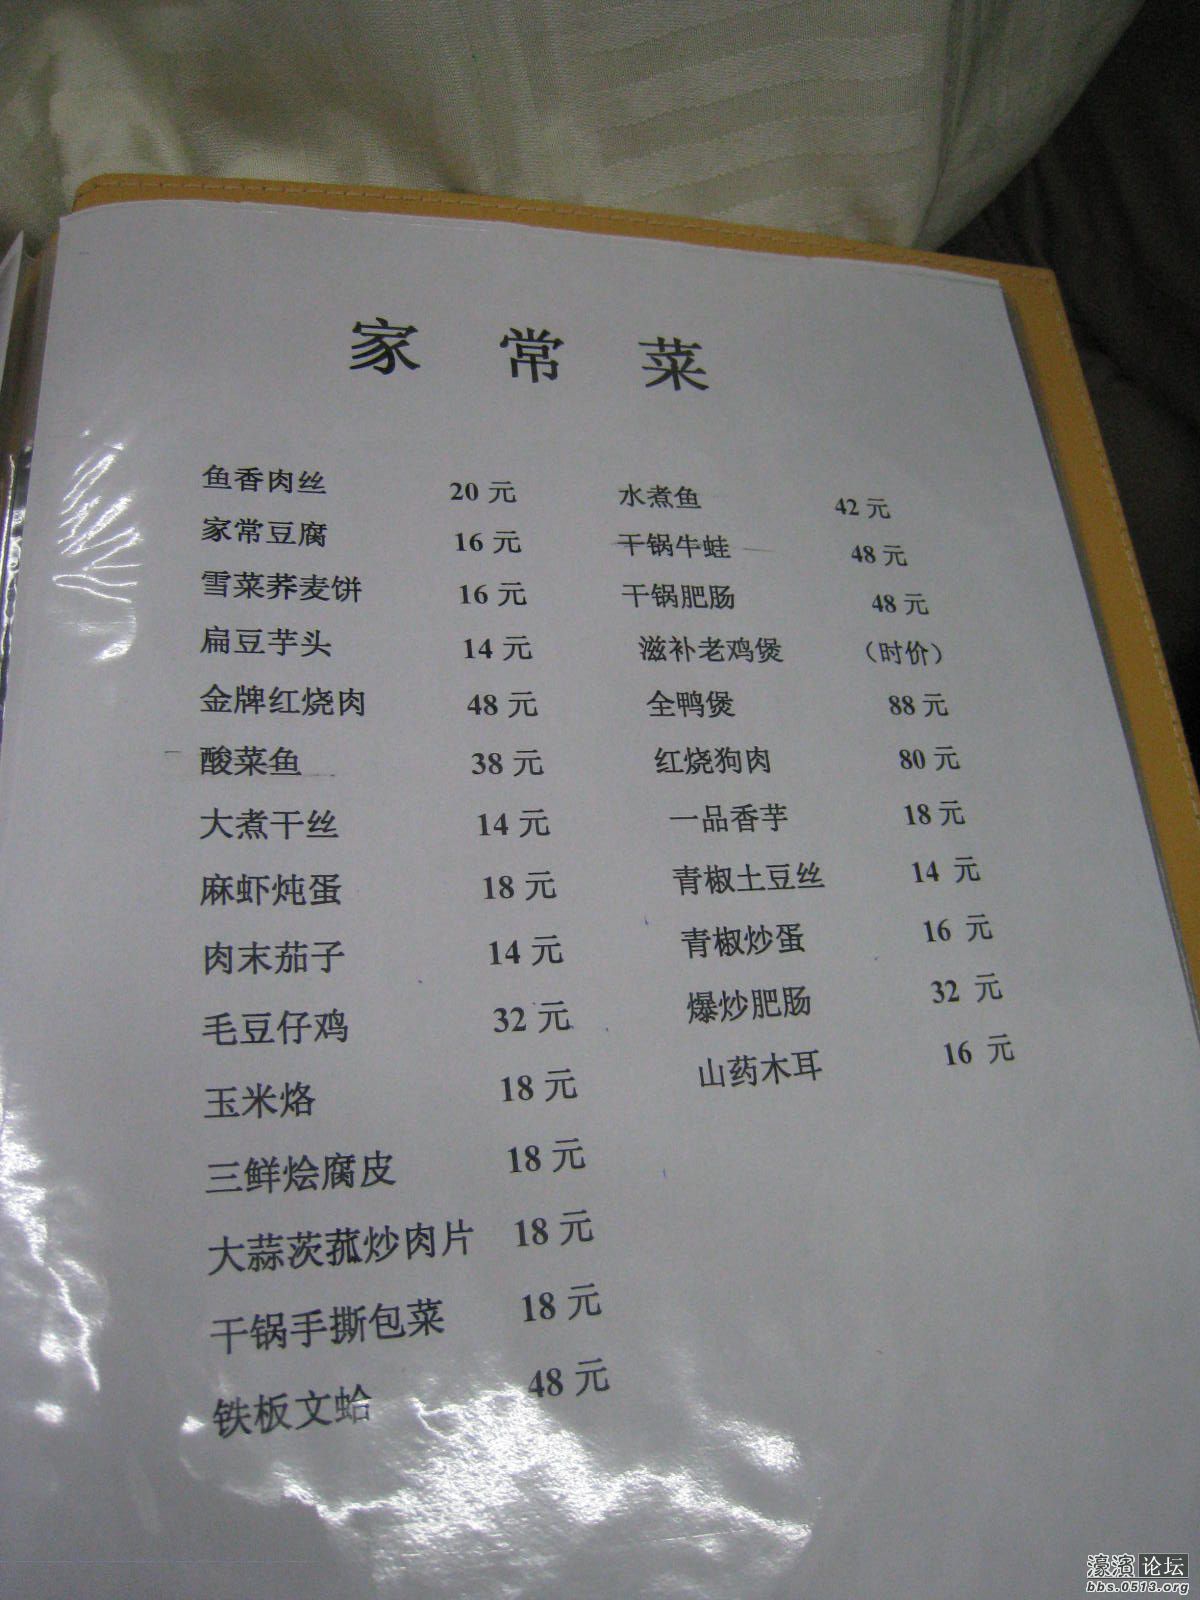 家 常 菜
鱼香肉丝 20 元
家常豆腐 16 元
雪菜荞麦饼 16 元
扁豆芋头 14 元
金牌红烧肉 48 元
酸菜鱼 38 元
大煮干丝 14 元
麻虾炖蛋 18 元
肉末茄子 14 元
毛豆仔鸡 32 元
玉米烙 18 元
三鲜烩腐皮 18 元
大蒜茨菰炒肉片 18 元
干锅手撕包菜 18 元
铁板文蛤 48 元
水煮鱼 42 元
干锅牛蛙 48 元
干锅肥肠 48 元
滋补老鸡煲 （时价）
全鸭煲 88 元
红烧狗肉 80 元
一品香芋 18 元
青椒土豆丝 14 元
青椒炒蛋 16 元
爆炒肥肠 32 元
山药木耳 16 元
濠滨论坛
bbs.0513.org